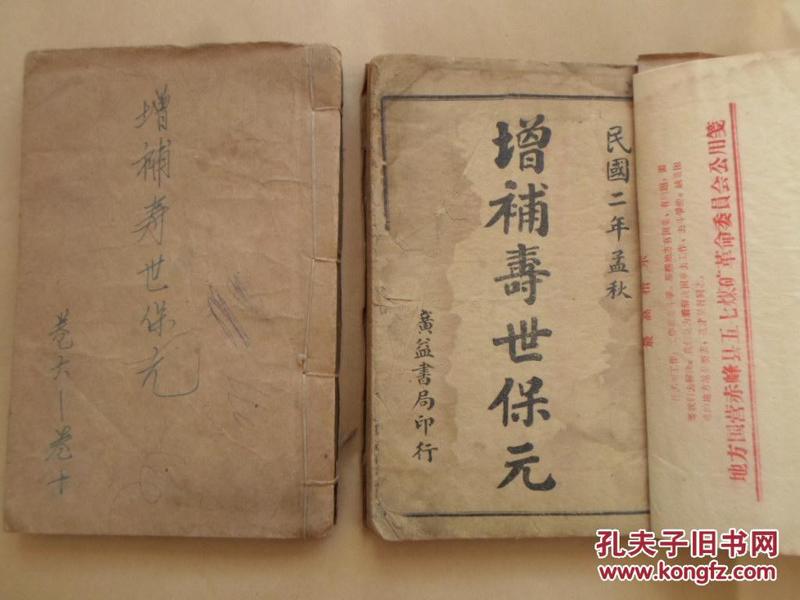 增補寿世保元
卷六—卷十
民國二年孟秋
增補壽世保元
廣益書局印行
最高指示
地方国营赤峰县五七煤矿革命委员会公用笺
孔夫子旧书网
www.kongfz.com